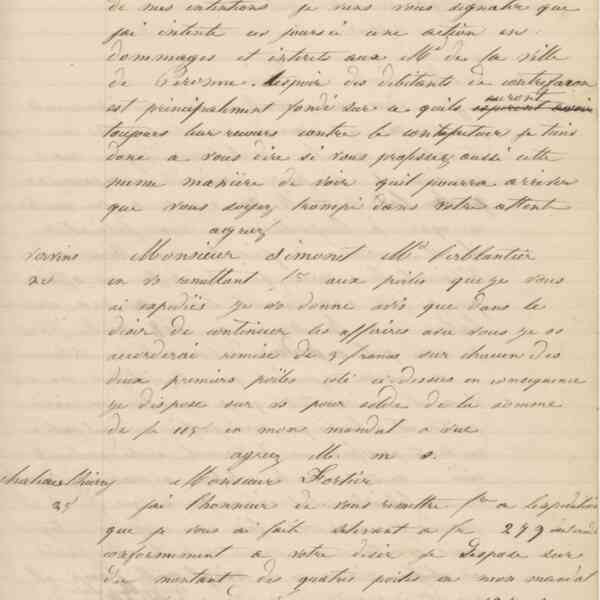 de mes intentions je viens vous signaler que
j'ai intenté ces jours ci une action en
dommages et interets aux Md de la ville
de Peronne. L'espoir des débitants de contrefaçon
est principalement fondé sur ce quils esperent avoir auront
toujours leur recours contre le contrefacteur je tiens
donc a vous dire si vous professez aussi cette
meme maniere de voir quil pourra arriver
que vous soyez trompé dans votre attente
agreez
vervins Monsieur Simont Md Ferblantier
25 en vs remettant fre aux poëles que je vous
ai expédiés je vs donne avis que dans le
desir de continuer les affaires avec vous je vs
accorderai remise de 5 francs sur chacun des
deux premiers poëles coté ci-dessus en consequence
je dispose sur vs pour solde de la somme
de fr 115 en mon mandat a vue
agreez M. m s.
chateau thierry Monsieur Fortier
25 j'ai l'honneur de vous remettre fre a l'expédition
que je vous ai faite s'elevant a fr 279
conformement a votre desir je Dispose sur
du montant des quatre poëles en mon mandat